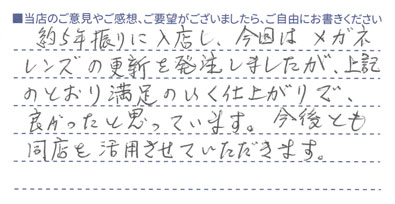 ■当店のご意見やご感想、ご要望がございましたら、ご自由にお書きください
約5年振りに入店し、今回はメガネ
レンズの更新を発注しましたが、上記
のとおり満足のいく仕上がりで、
良かったと思っています。今後とも
同店を活用させていただきます。